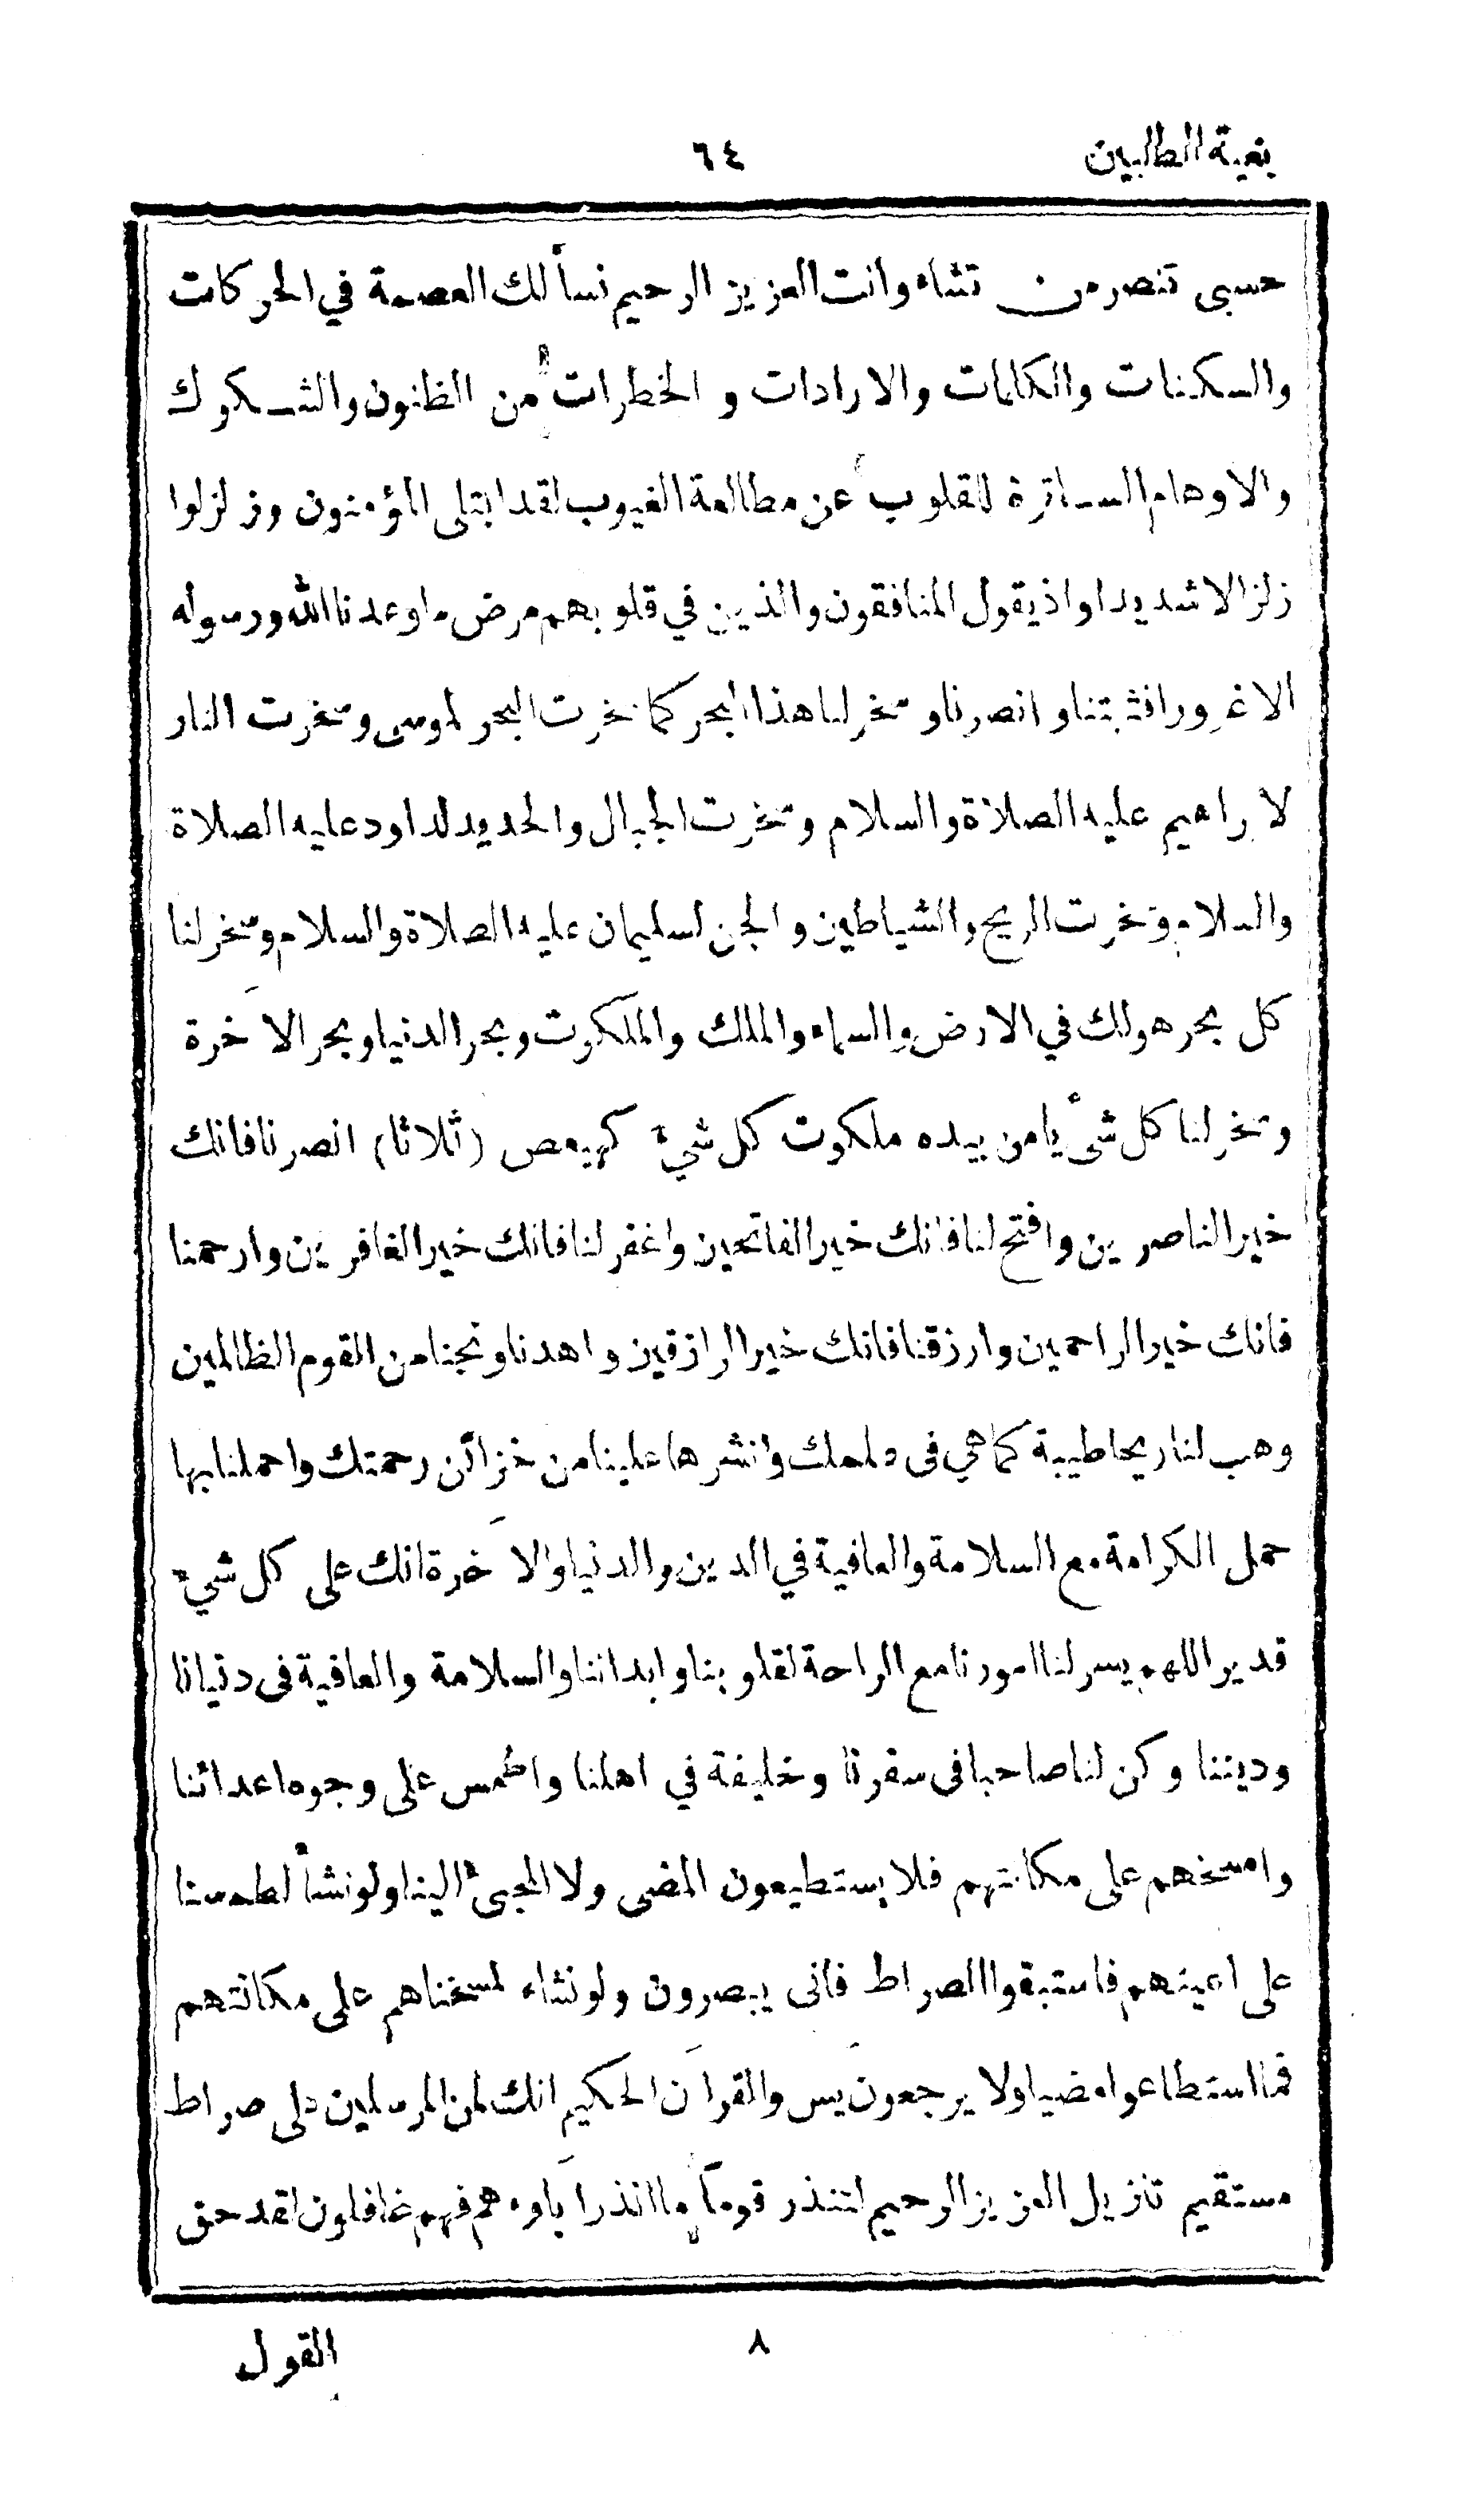 بغية الطالبين
٦٤
حسبى تنصر من تشاء وانت العزيز الرحيم نسألك العصمة في الحركات
والسكنات والكلمات والارادات و الخطرات من الظنون والشكوك
والاوهام الساترة للقلوب عن مطالعة الغيوب لقد ابتلى المؤمنون وزلزلوا
زلزالا شديدا واذ يقول المنافقون والذين في قلوبهم مرض ما وعدنا الله ورسوله
الا غرورا فثبتنا وانصرنا وسخر لنا هذا البحر كما سخرت البحر لموسى وسخرت النار
لابراهيم عليه الصلاة والسلام وسخرت الجبال والحديد لداود عليه الصلاة
والسلام وسخرت الريح والشياطين والجن لسليمان عليه الصلاة والسلام وسخر لنا
كل بحر هو لك في الارض والسماء والملك والملكوت وبحر الدنيا وبحر الآخرة
وسخر لنا كل شىء يا من بيده ملكوت كل شيء كهيعص (ثلاثا) انصرنا فانك
خير الناصرين وافتح لنا فانك خير الفاتحين واغفر لنا فانك خير الغافرين وارحمنا
فانك خير الراحمين وارزقنا فانك خير الرازقين واهدنا ونجنا من القوم الظالمين
وهب لنا ريحا طيبة كما هي فى علمك وانشرها علينا من خزائن رحمتك واحملنا بها
حمل الكرامة مع السلامة والعافية في الدين والدنيا والآخرة انك على كل شيء
قدير اللهم يسر لنا امورنا مع الراحة لقلوبنا وابداننا والسلامة والعافية فى دنيانا
وديننا وكن لنا صاحبا فى سفرنا وخليفة في اهلنا واطمس على وجوه اعدائنا
وامسخهم على مكانتهم فلا يستطيعون المضى ولا المجىء الينا ولو نشأ لطمسنا
على اعينهم فاستبقوا الصراط فانى يبصرون ولو نشاء لمسخناهم على مكانتهم
فما استطاعوا مضيا ولا يرجعون يس والقرآن الحكيم انك لمن المرسلين على صراط
مستقيم تنزيل العزيز الرحيم لتنذر قوماً ما انذر آباؤهم فهم غافلون لقد حق
٨
القول